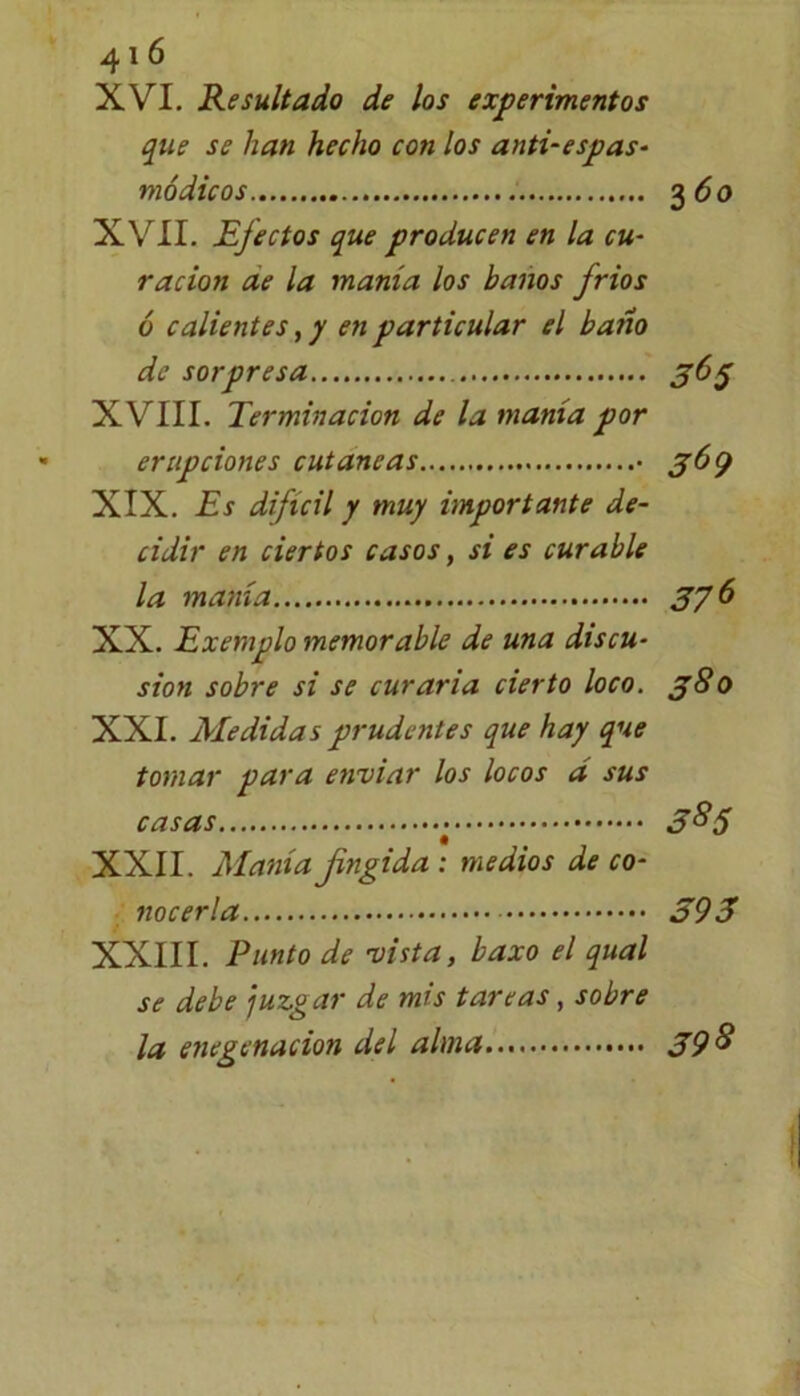 416
XVI. Resultado de los experimentos
que se han hecho con los anti-espas-
módicos........................................ 360
XVII. Efectos que producen en la cu-
racion de la manía los baños frios
ó calientes, y en particular el baño
de sorpresa.................................... 365
XVIII. Terminacion de la manía por
erupciones cutaneas........................ 369
XIX. Es difícil y muy importante de-
cidir en ciertos casos, si es curable
la manía........................................ 376
XX. Exemplo memorable de una discu-
sion sobre si se curaria cierto loco. 380
XXI. Medidas prudentes que hay que
tomar para enviar los locos á sus
casas............................................. 385
XXII. Manía fingida: medios de co-
nocerla.......................................... 393
XXIII. Punto de vista, baxo el qual
se debe juzgar de mis tareas, sobre
la enegenacion del alma................. 398